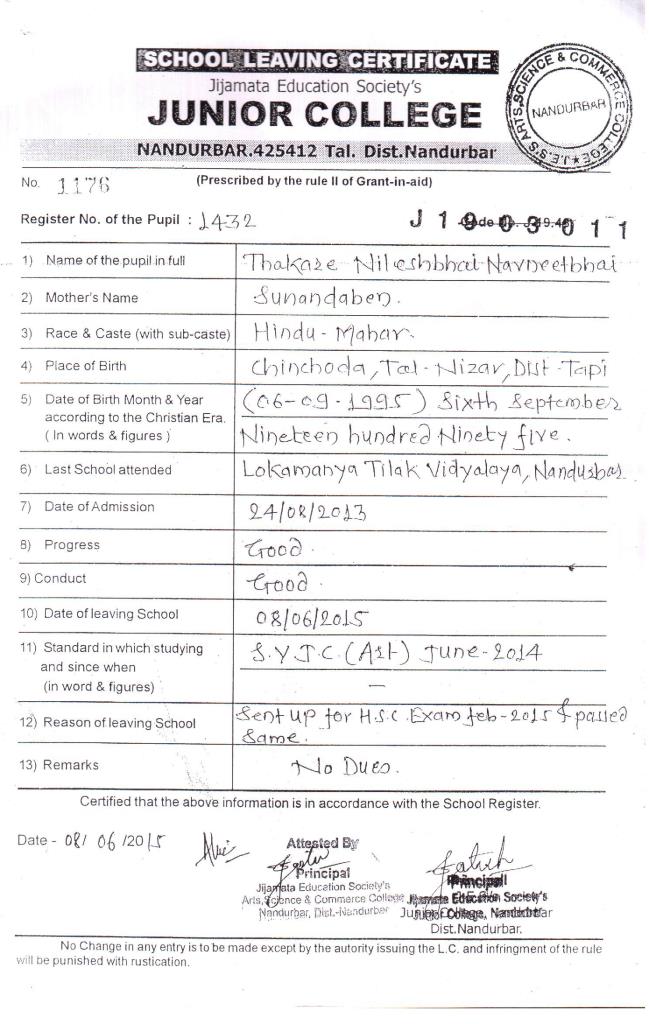 SCHOOL LEAVING CERTIFICATE
Jijamata Education Society's
JUNIOR COLLEGE
NANDURBAR.425412 Tal. Dist.Nandurbar
J.E.S'S ARTS, SCIENCE & COMMERCE COLLEGE
NANDURBAR
No. 1176 (Prescribed by the rule II of Grant-in-aid)
Register No. of the Pupil : 1432 J 1 9 0 3 0 1 1
1) Name of the pupil in full Thakare Nileshbhai Navneetbhai
2) Mother's Name Sunandaben.
3) Race & Caste (with sub-caste) Hindu - Mahar.
4) Place of Birth Chinchoda, Tal - Nizar, Dist - Tapi
5) Date of Birth Month & Year (06-09-1995) Sixth September
according to the Christian Era.
( In words & figures ) Nineteen hundred Ninety five.
6) Last School attended Lokamanya Tilak Vidyalaya, Nandurbar
7) Date of Admission 24/08/2013
8) Progress Good.
9) Conduct Good.
10) Date of leaving School 08/06/2015
11) Standard in which studying S.Y.J.C. (Art) June - 2014
and since when
(in word & figures) —
12) Reason of leaving School Sent up for H.S.C. Exam feb-2015 & passed
Same.
13) Remarks No Dues.
Certified that the above information is in accordance with the School Register.
Date - 08/ 06 /2015
Attested By
Principal
Jijamata Education Society's
Arts, Science & Commerce College
Nandurbar, Dist.-Nandurbar
Principal
Jijamata Education Society's
Junior College, Nandurbar
Dist.Nandurbar.
No Change in any entry is to be made except by the autority issuing the L.C. and infringment of the rule
will be punished with rustication.